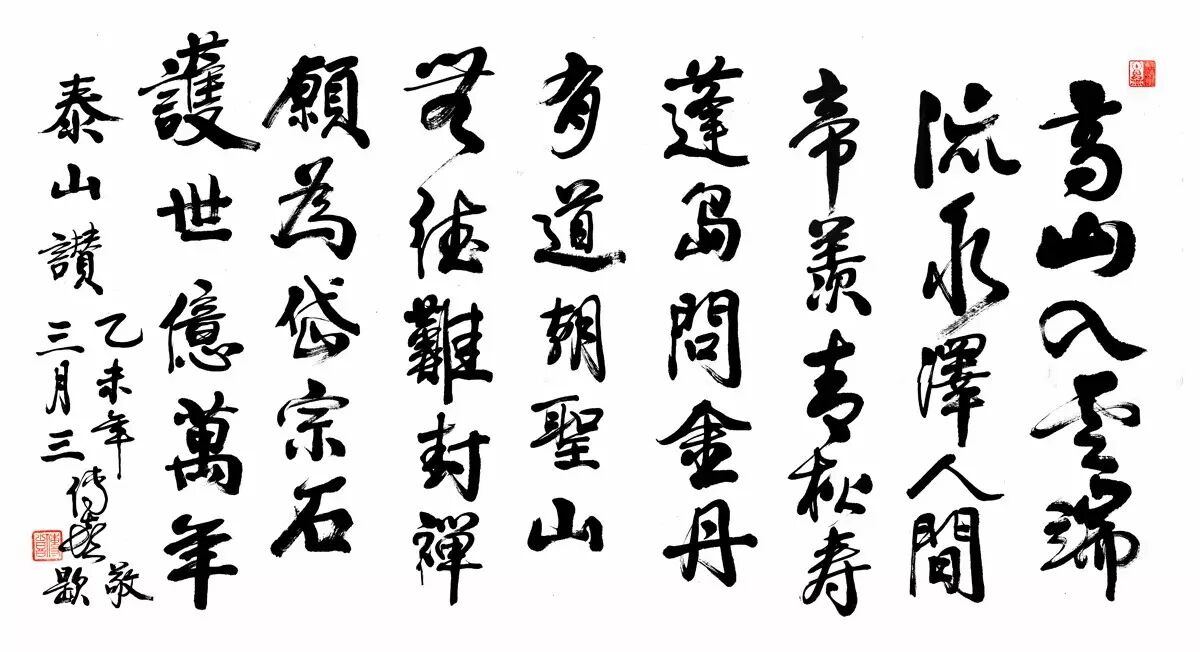 高山入雲端
流水澤人間
帝羨春秋寿
蓬島問金丹
有道朝聖山
無德難封禪
願為岱宗石
護世億萬年
泰山讃
乙未年
三月三
傳喜
敬題